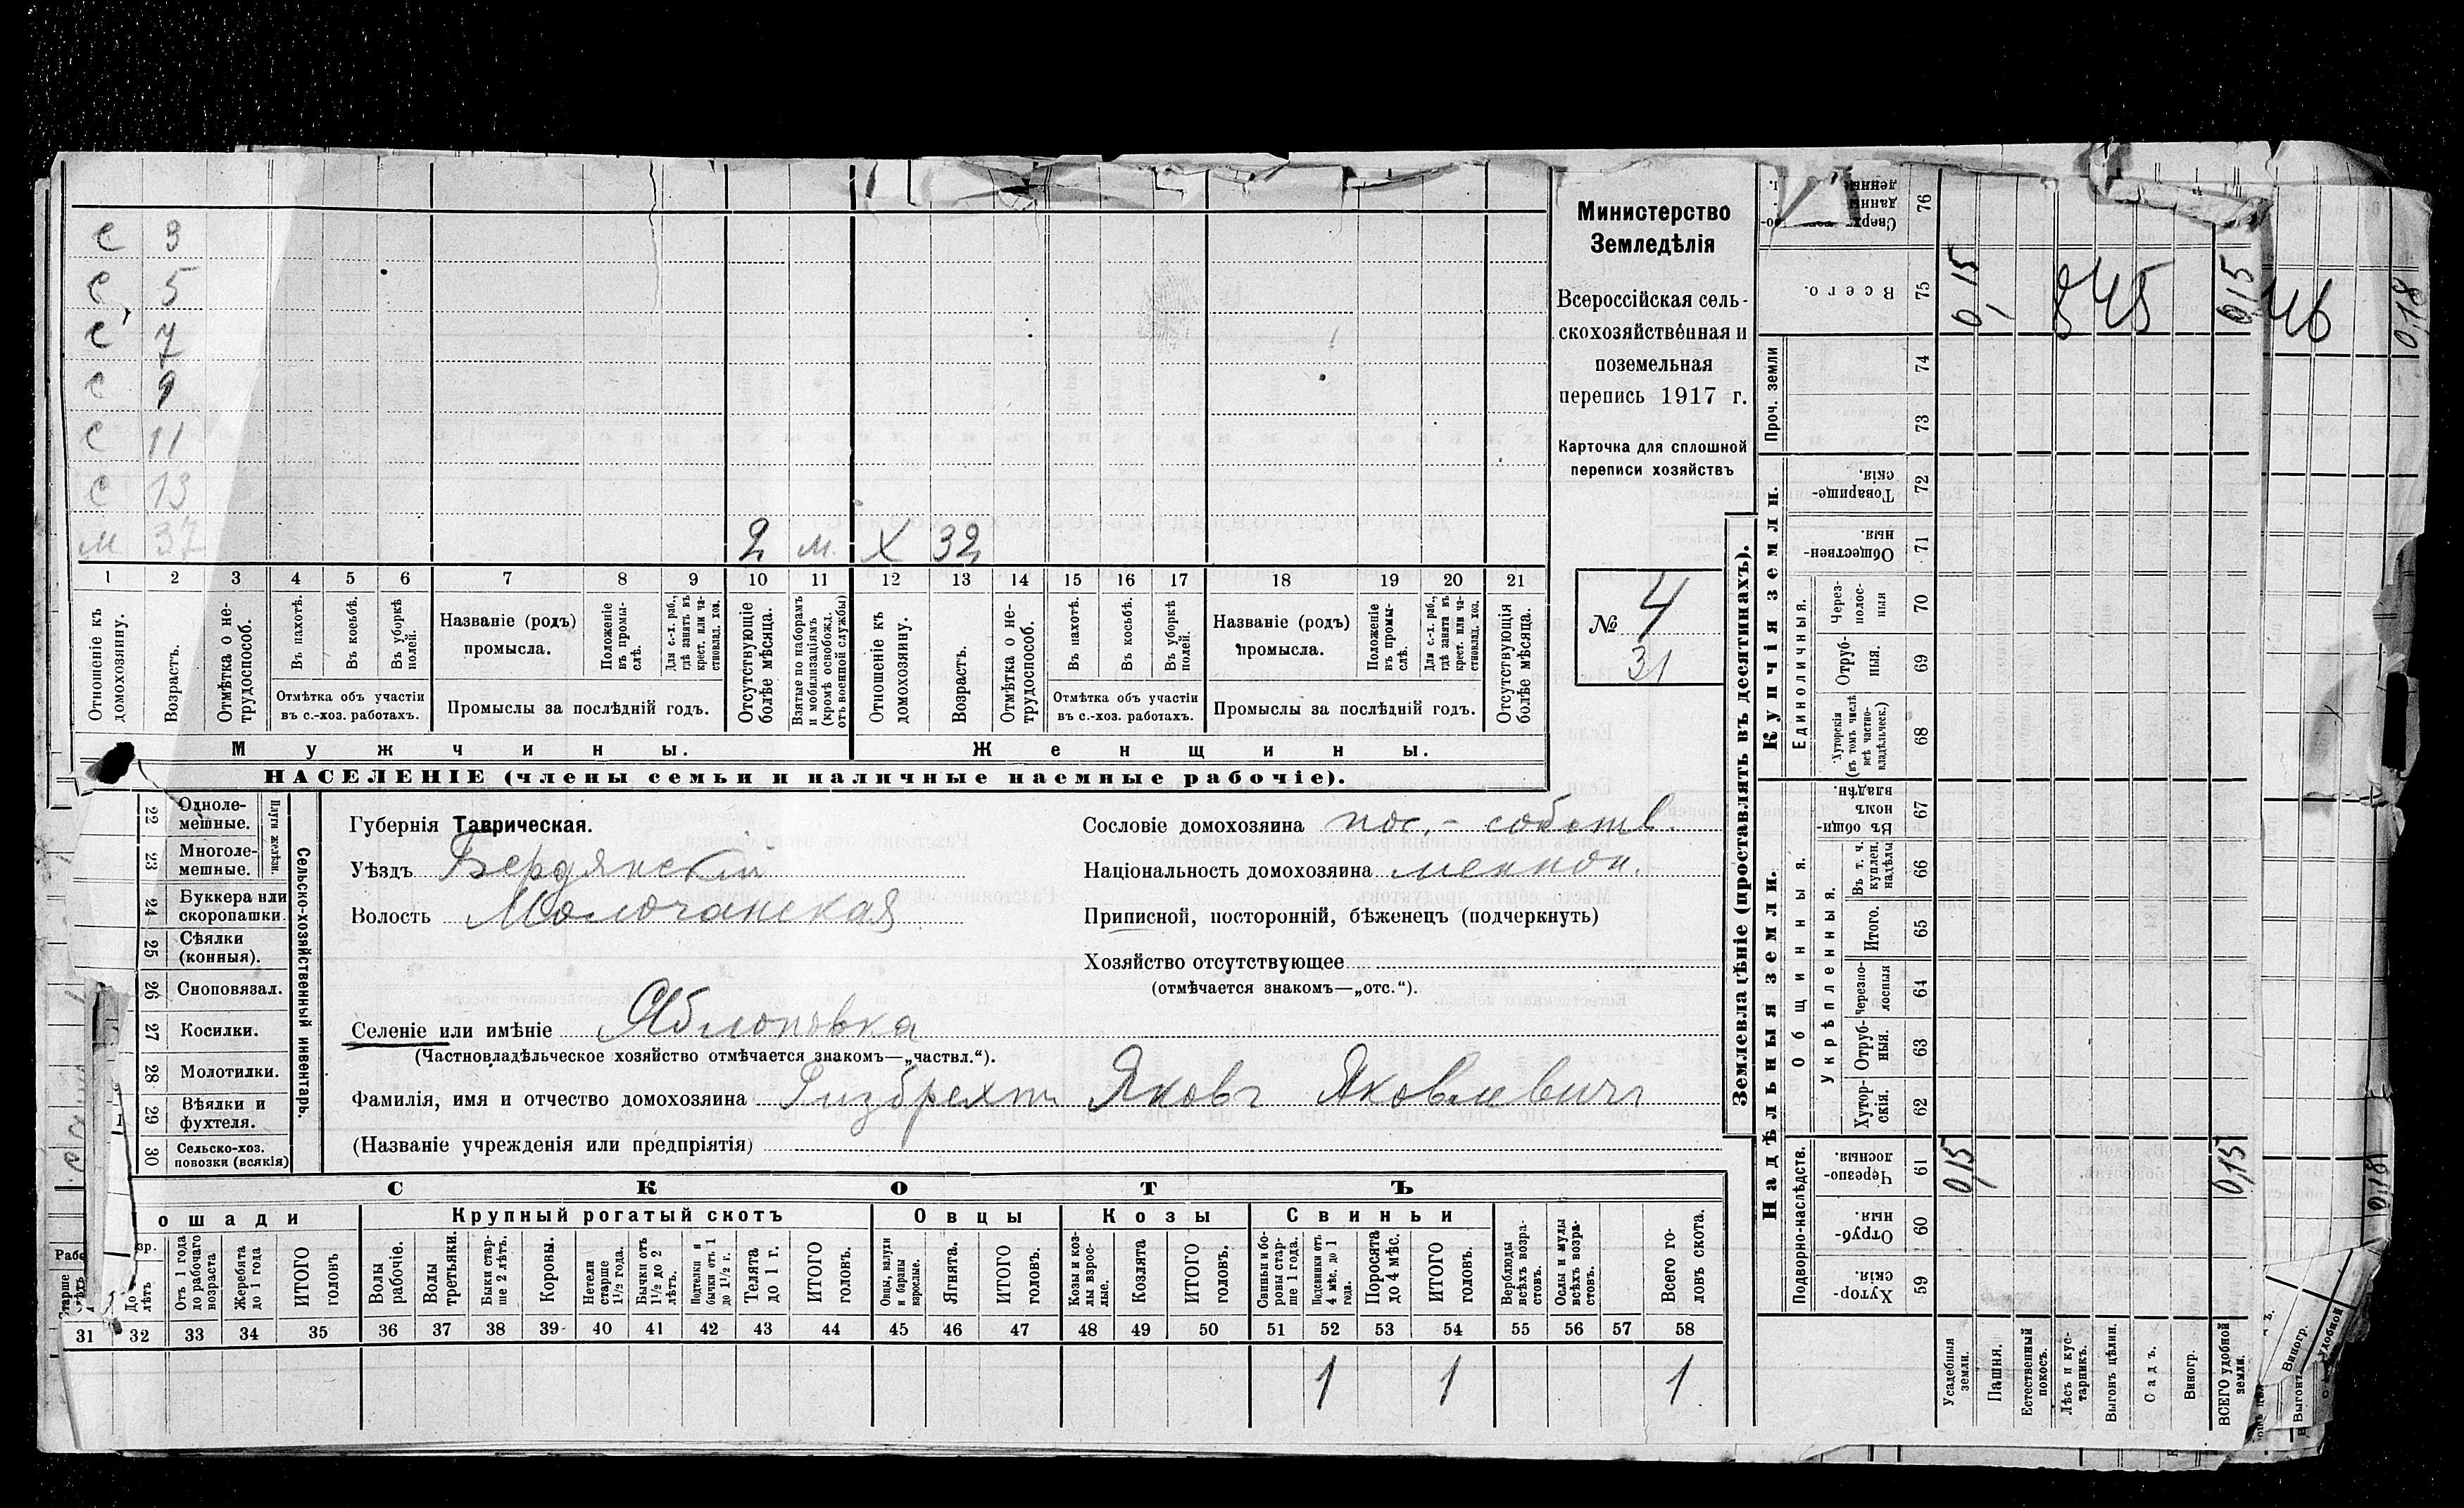 с 3
с 5
с 7
с 9
с 11
с 13
м 37 2 м. Х 32
1 2 3 4 5 6 7 8 9 10 11 12 13 14 15 16 17 18 19 20 21
Отношеніе къ домохозяину.
Возрастъ.
Отмѣтка о нетрудоспособ.
Въ пахотѣ.
Въ косьбѣ.
Въ уборкѣ полей.
Отмѣтка объ участіи въ с.-хоз. работахъ.
Названіе (родъ) промысла.
Положеніе въ промыслѣ.
Для с.-х. раб., гдѣ занятъ въ крест. или частновлад. хоз.
Промыслы за послѣдній годъ.
Отсутствующіе болѣе мѣсяца.
Взятые по наборамъ и мобилизаціямъ (кромѣ освобожд. отъ военной службы)
Отношеніе къ домохозяину.
Возрастъ.
Отмѣтка о нетрудоспособ.
Въ пахотѣ.
Въ косьбѣ.
Въ уборкѣ полей.
Отмѣтка объ участіи въ с.-хоз. работахъ.
Названіе (родъ) промысла.
Положеніе въ промыслѣ.
Для с.-х. раб., гдѣ занята въ крест. или частновлад. хоз.
Промыслы за послѣдній годъ.
Отсутствующія болѣе мѣсяца.
Мужчины. Женщины.
НАСЕЛЕНІЕ (члены семьи и наличные наемные рабочіе).
Министерство
Земледѣлія
Всероссійская сель-
скохозяйственная и
поземельная
перепись 1917 г.
Карточка для сплошной
переписи хозяйствъ
№ 4
31
Сельско-хозяйственный инвентарь.
Плуги желѣзн.
22 Одноле-мешные.
23 Многоле-мешные.
24 Буккера или скоропашки.
25 Сѣялки (конныя).
26 Сноповязал.
27 Косилки.
28 Молотилки.
29 Вѣялки и фухтеля.
30 Сельско-хоз. повозки (всякія)
Губернія Таврическая.
Уѣздъ Бердянскій
Волость Молочанская
Селеніе или имѣніе Яблоновка
(Частновладѣльческое хозяйство отмѣчается знакомъ—„частвл.“).
Фамилія, имя и отчество домохозяина Гизбрехтъ Яковъ Яковлевичъ
(Названіе учрежденія или предпріятія)
Сословіе домохозяина пос.- собств.
Національность домохозяина меннон.
Приписной, посторонній, бѣженецъ (подчеркнуть)
Хозяйство отсутствующее
(отмѣчается знакомъ—„отс.“).
СКОТЪ
ошади Крупный рогатый скотъ Овцы Козы Свиньи
Рабо
До лѣтъ
Отъ 1 года до рабочаго возраста
Жеребята до 1 года
ИТОГО головъ
Волы рабочіе.
Волы третьяки.
Быки старше 2 лѣтъ.
Коровы.
Нетели старше 1½ года.
Бычки отъ 1½ до 2 лѣтъ.
Подтелки и бычки отъ 1 до 1½ г.
Телята до 1 г.
ИТОГО головъ.
Овцы, валухи и бараны взрослые.
Ягнята.
ИТОГО головъ.
Козы и козлы взрослые.
Козлята
ИТОГО головъ.
Свиньи и боровы старше 1 года.
Подсвинки отъ 4 мѣс. до 1 года.
Поросята до 4 мѣс.
ИТОГО головъ.
Верблюды всѣхъ возрастовъ.
Ослы и мулы всѣхъ возрастовъ.
Всего головъ скота.
31 32 33 34 35 36 37 38 39 40 41 42 43 44 45 46 47 48 49 50 51 52 53 54 55 56 57 58
1 1 1
Землевладѣніе (проставлять въ десятинахъ).
Надѣльныя земли.
Купчія земли.
Проч. земли
Подворно-наслѣдств.
Общинныя.
Укрѣпленныя.
Единоличныя.
59 Хуторскія.
60 Отрубныя.
61 Черезполосныя. 0,15 0,15 0,18
62 Хуторскія.
63 Отрубныя.
64 Черезполосныя
65 Итого.
66 Въ т. ч. куплен. надѣлы
67 Въ общинномъ владѣн.
68 Хуторскія (въ томъ числѣ всѣ частновладѣльческ.)
69 Отрубныя.
70 Черезполосныя
71 Общественныя.
72 Товарищескія.
73
74
75 Всего. 0,15 845 0,15 46 0,18
76
Усадебныя земли.
Пашня.
Естественный покосъ.
Лѣсъ и кустарникъ.
Выгонъ цѣлин.
Садъ.
Виногр.
ВСЕГО удобной земли.
Виногр.
удобной
Выгонъ